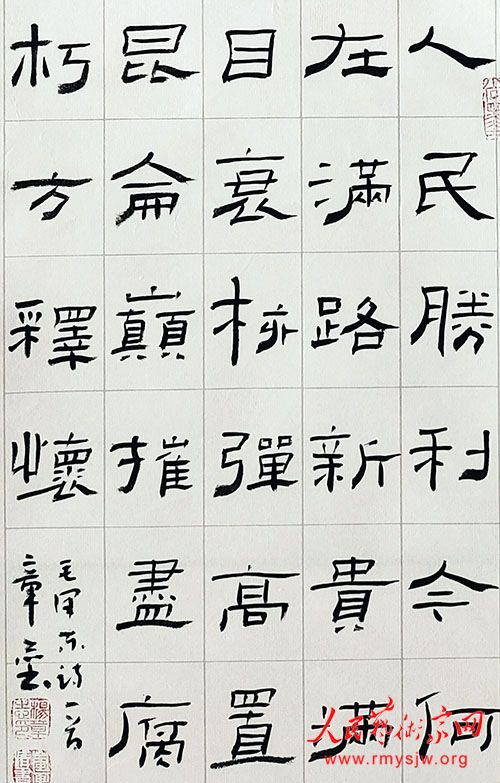 人民勝利今何
在滿路新貴滿
目衰核彈高置
昆侖巔摧盡腐
朽方釋懷
毛泽东诗一首
人民藝術家网
www.rmysjw.org